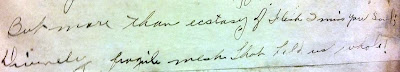 But more than ecstasy of flesh I miss your soul!
Divinely fragile mesh that told us, what!